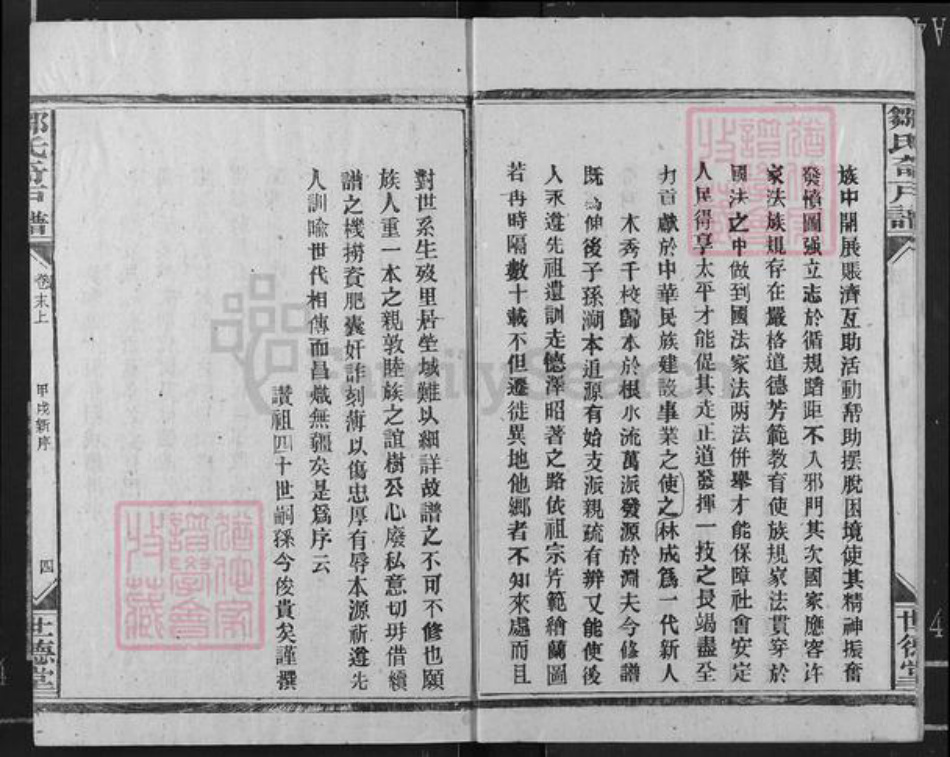 鄒氏奇戶譜
世德堂
族中開展賬濟互助活動幫助摆脫困境使其精神振奮
發憤圖强立志於循規蹈距不入邪門其次國家應容许
家法族規存在嚴格道德芳範教育使族規家法貫穿於
國法之中做到國法家法两法併舉才能保障社會安定
人民得享太平才能促其走正道發揮一技之長竭盡全
力貢獻於中華民族建設事業之使之林成爲一代新人
木秀千校歸本於根水流萬派發源於淵夫今修譜
既為伸後子孫溯本追源有始支派親疏有辨又能使後
人永遵先祖遺訓走德澤昭著之路依祖宗芳範繪蘭圖
若冉時隔數十載不但遷徙異地他鄉者不知來處而且
對世系生歿里居塋域難以細詳故譜之不可不修也願
族人重一本之親敦睦族之誼樹公心廢私意切毋借續
譜之機撈資肥囊奸詐刻薄以傷忠厚有辱本源祈遵先
人訓喻世代相傳而昌熾無疆矣是爲序云
讃祖四十世嗣孫今俊貴矣謹撰
鄒氏奇戶譜
卷末上
甲戌新序
四
世德堂
譜學會
收藏
FamilySearch